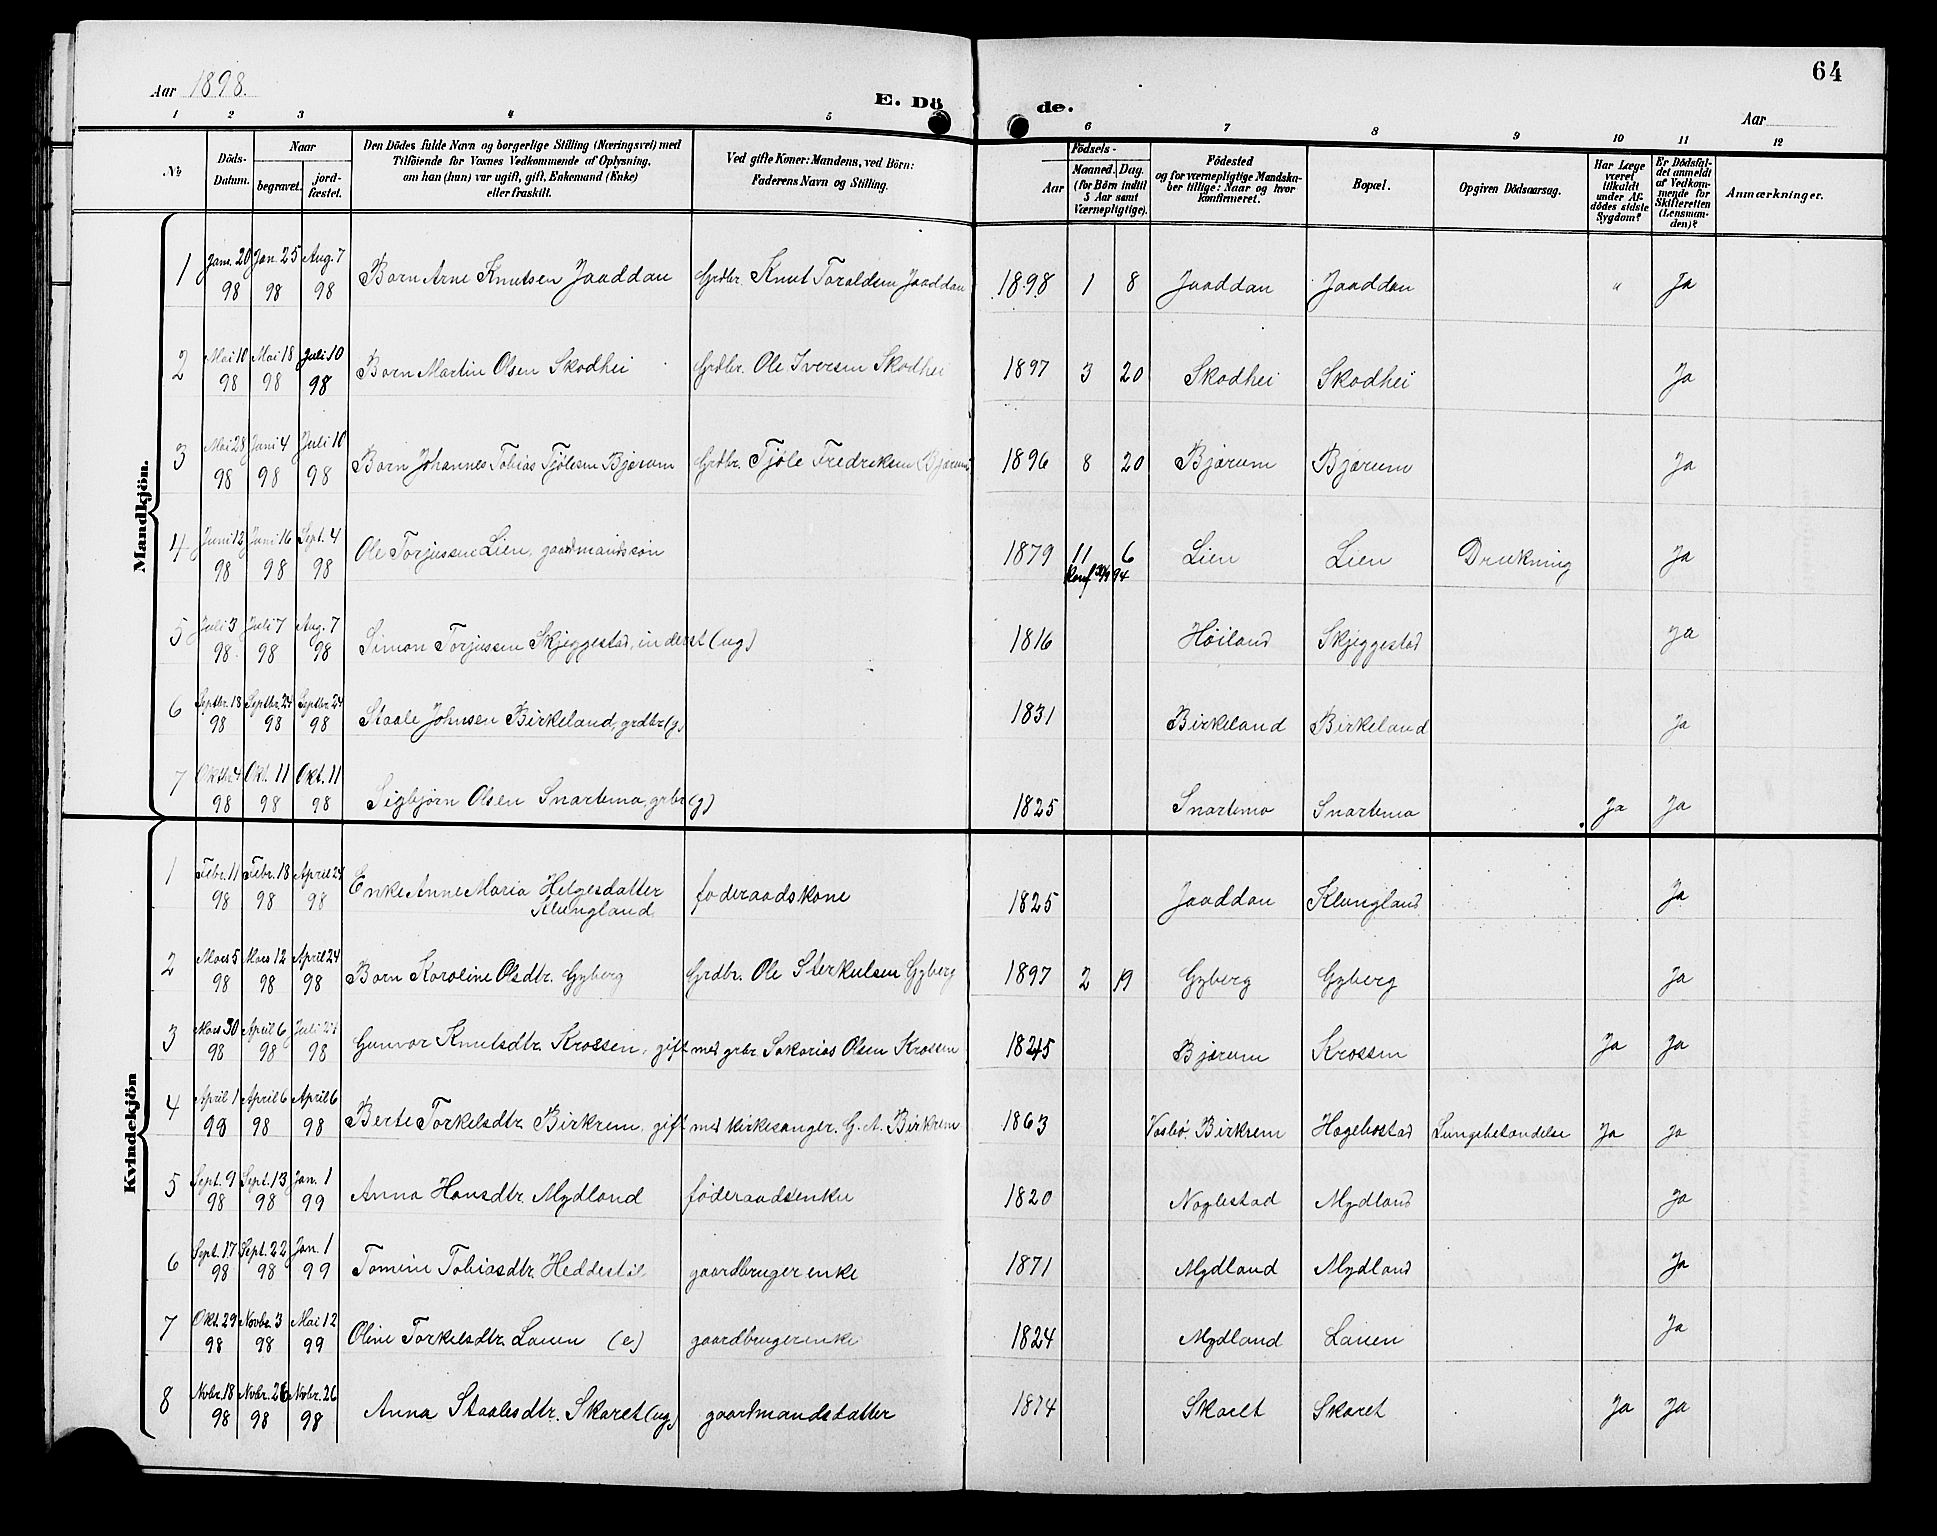 64
Aar 1898.
E. Dö de.
Aar
1 2 3 4 5 6 7 8 9 10 11 12
№
Döds-Datum.
Naar
begravet. jord-fæstet.
Den Dödes fulde Navn og borgerlige Stilling (Næringsvei) med
Tilföiende for Voxnes Vedkommende af Oplysning,
om han (hun) var ugift, gift, Enkemand (Enke)
eller fraskilt.
Ved gifte Koner: Mandens, ved Börn:
Faderens Navn og Stilling.
Födsels-
Aar Maaned. Dag.
(for Börn indtil
5 Aar samt
Værnepligtige).
Födested
og for værnepligtige Mandska-
ber tillige: Naar og hvor
konfirmeret.
Bopæl.
Opgiven Dödsaarsag.
Har Læge
været
tilkaldt
under Af-
dödes sidste
Sygdom?
Er Dödsfal-
det anmeldt
af Vedkom-
mende for
Skifteretten
(Lensman-
den)?
Anmærkninger.
Mandkjön.
1 Jan. 20 98 Jan. 25 98 Aug. 7 98 Barn Arne Knutsen Jaaddan Grdbr. Knut Toraldsen Jaaddan 1898 1 8 Jaaddan Jaaddan " Ja
2 Mai 10 98 Mai 18 98 Juli 10 98 Barn Martin Olsen Skodhei Grdbr. Ole Iversen Skodhei 1897 3 20 Skodhei Skodhei Ja
3 Mai 28 98 Juni 4 98 Juli 10 98 Barn Johannes Tobias Tjölesen Bjerum Grdbr. Tjöle Fredriksen (Bjærum) 1896 8 20 Bjærum Bjærum Ja
4 Juni 12 98 Juni 16 98 Sept. 4 98 Ole Torjussen Lien, gaardmandssön 1879 11 6 Lien Lien Drukning Ja
Konf 30/9 94
5 Juli 3 98 Juli 7 98 Aug. 7 98 Simon Torjussen Skjeggestad, inderst (ug) 1816 Höiland Skjeggestad Ja
6 Septbr. 18 98 Septbr. 24 98 Septbr. 24 98 Staale Johnsen Birkeland, grdbr (g) 1831 Birkeland Birkeland Ja
7 Oktbr. 4 98 Okt. 11 98 Okt. 11 98 Sigbjörn Olsen Snartemo, grbr (g) 1825 Snartemo Snartemo Ja Ja
Kvindekjön
1 Febr. 11 98 Febr. 18 98 April 24 98 Enke Anne Maria Helgesdatter
Klungland föderaadskone 1825 Jaaddan Klungland Ja
2 Mars 5 98 Mars 12 98 April 24 98 Barn Karoline Olsdtr. Gyberg Grdbr. Ole Sterkulsen Gyberg 1897 2 19 Gyberg Gyberg Ja
3 Mars 30 98 April 6 98 Juli 98 Gunvor Knutsdtr. Krossen, gift med grbr Sakarias Olsen Krossen Bjærum Krossen Ja Ja
4 April 1 98 April 6 98 April 6 98 Berte Torkelsdtr. Birkrem, gift med kirkesanger. G. A. Birkrem 1863 Vasbö, Birkrem Hægebostad Lungebetændelse Ja Ja
5 Sept. 9 98 Sept. 13 98 Jan. 1 99 Anna Hansdtr. Mydland föderaadsenke 1820 Naglestad Mydland Ja
6 Sept. 17 98 Sept. 22 98 Jan. 1 99 Tomine Tobiasdtr. Heddestöl gaardbrugerenke 1871 Mydland Mydland Ja
7 Okt. 29 98 Novbr. 3 98 Mai 12 99 Oline Torkelsdtr. Lauen (e) gaardbrugerenke 1824 Mydland Lauen Ja
8 Novbr. 18 98 Novbr. 26 98 Novbr. 26 98 Anna Staalesdtr. Skaret (ug) gaardmandsdatter 1874 Skaret Skaret Ja Ja